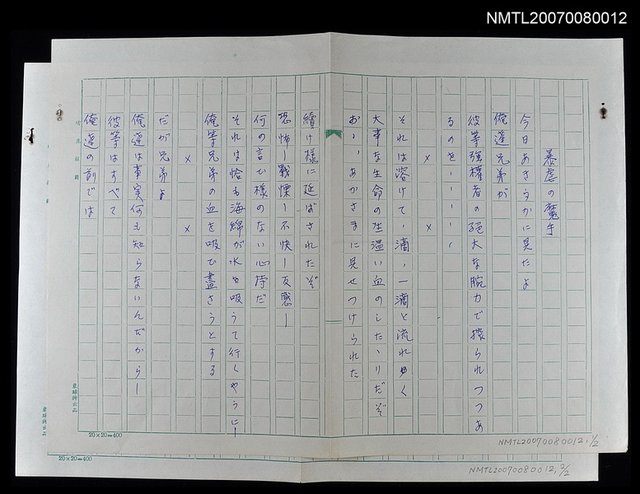 NMTL20070080012
暴虐の魔手
今日あきらかに見たよ
俺達兄弟が
彼等強権者の絶大な腕力で搾られつつあ
るのを・・・・・
× ×
それは溶けて、滴、一滴と流れゆく
大事な生命の生温い血のしたゝりだぞ
おゝ、あからさまに見せつけられた
續け様に延ばされたぞ
恐怖ー戰慄ー不快ー反感ー
何の言ひ様のない心持だ
それは恰も海綿が水を吸うて行くやうにー
俺等兄弟の血を吸ひ盡さうとする
× ×
だが兄弟よ
俺達は事実何も知らないんだからー
彼等はすべて
俺達の前では
20×20=400
20×20=400
NMTL20070080012, 1/2
NMTL20070080012, 2/2